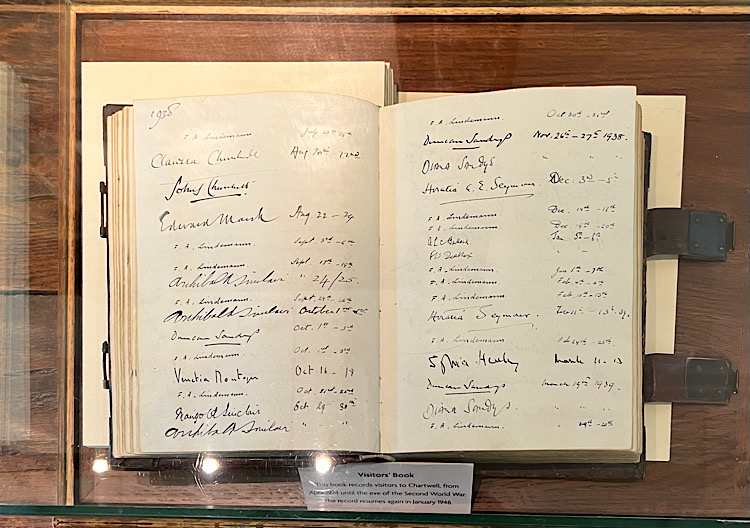 1938
F. A. Lindemann July
Clarissa Churchill Aug 20th
John S. Churchill
Edward Marsh Aug 22 – 24
F. A. Lindemann. Sept. 3rd
F. A. Lindemann. Sept. 17th
Archibald Sinclair " 24/25.
F. A. Lindemann. Sept
Archibald Sinclair October 1st
Duncan Sandys Oct. 1st – 3rd
F. A. Lindemann. Oct. 1st
Venetia Montagu Oct 16 – 19
F. A. Lindemann. Oct.
Sinclair Oct 29 30th
Archibald Sinclair " "
F. A. Lindemann. Oct 30th – 31st
Duncan Sandys Nov. 26th – 27th 1938.
Diana Sandys " "
Horatia E. Seymour. Dec. 3rd – 5
F. A. Lindemann. Dec.
F. A. Lindemann. Dec.
Jan.
F. A. Lindemann. Jan
F. A. Lindemann. Feb
F. A. Lindemann. Feb.
Horatia Seymour. Feb 11 – 13. 39.
F. A. Lindemann Feb
March 11 - 13
Duncan Sandys March 19th 1939.
Diana Sandys. " "
F. A. Lindemann.
Visitors' Book
This book records visitors to Chartwell, from
until the eve of the Second World War.
The record resumes again in January 1946.